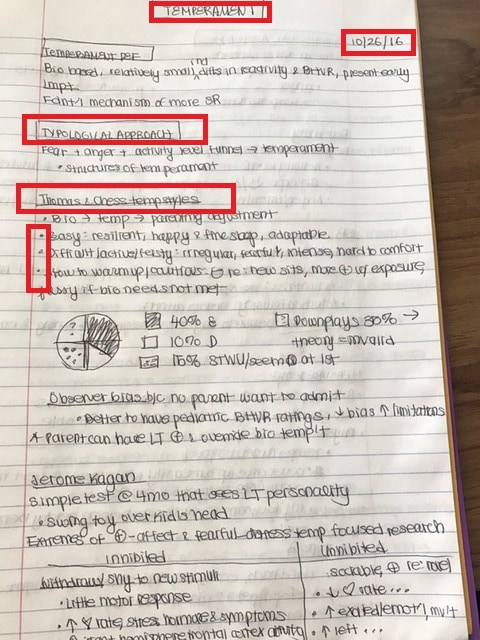 TEMPERAMENT
10/26/16
TEMPERAMENT DEF
Bio based, relatively small ind diffs in reactivity & BHVR, present early
Impt
Fdnt'l mechanism of more SR
TYPOLOGICAL APPROACH
Fear + anger + activity level funnel → temperament
• structures of temperament
Thomas & Chess temp styles
• Bio → temp → parenting adjustment
• Easy: resilient, happy & fine sleep, adaptable
• Difficult/active/feisty: irregular, fearful, intense, hard to comfort
• Slow to warm up/cautious: ⊖ re: new sits, more ⊕ w/ exposure,
fussy if bio needs not met
?
40% E
10% D
15% STWU/seem at 1st
? Downplays 30% →
theory = invalid
Observer bias b/c no parent want to admit
• Better to have pediatric BHVR ratings, ↓ bias ↑ limitations
* Parent can have LT ⊕ & override bio temp't
Jerome Kagan
Simple test @ 4mo that sees LT personality
• Swing toy over kid's head
Extremes of ⊕-affect & fearful-distress temp focused research
Inhibited
Uninhibited
Withdraw/shy to new stimuli
• Little motor response
• ↑ ♡ rate, stress hormones & symptoms
• ↑ right hemisphere frontal cortex activity
sociable, ⊕ re: novel
• ↓ ♡ rate...
• ↑ excited emot'l, mv't
• ↑ left ...